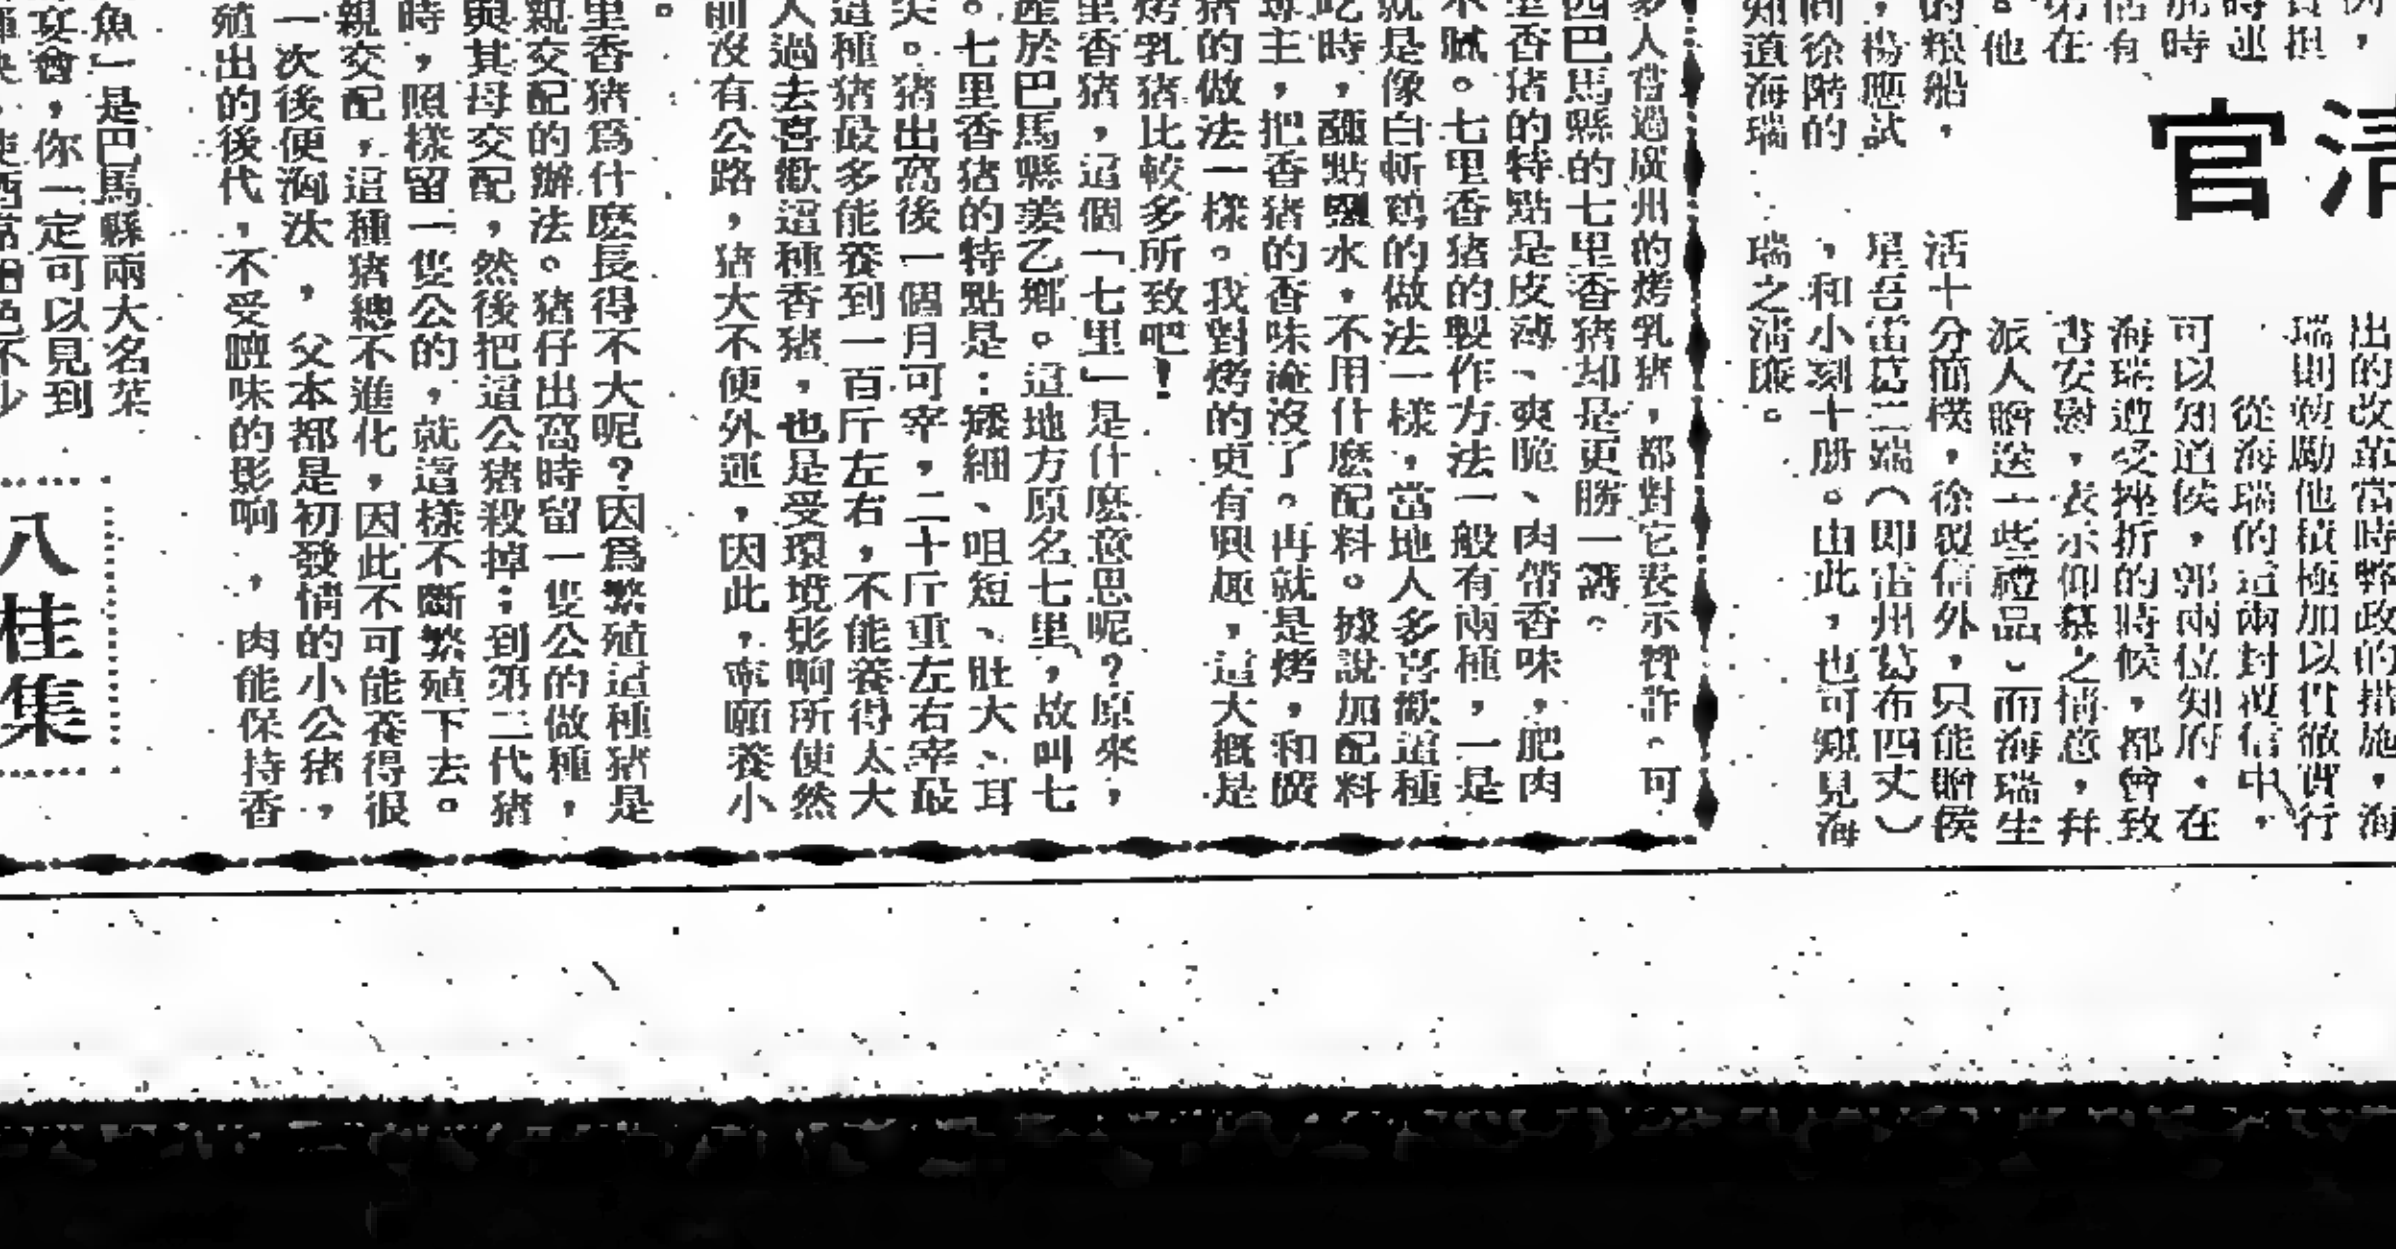 清
官
出的改革當時弊政的措施，海
瑞則勉勵他積極加以貫徹實行
從海瑞的這兩封覆信中，
可以知道侯，郭兩位知府，在
海瑞遭受挫折的時候，都曾致
書安慰，表示仰慕之情意，幷
派人贈送一些禮品；而海瑞生
的粮船，
活十分簡樸，徐製信外，只能贈侯
，楊應試
星吾雷葛二端（即雷州葛布四丈）
同徐階的
，和小刻十册。由此，也可窺見海
知道海瑞
瑞之清廉。
多人嘗過廣州的烤乳猪，都對它表示贊許。可
西巴馬縣的七里香猪却是更勝一籌。
里香猪的特點是皮薄、爽脆、肉帶香味，肥肉
不膩。七里香猪的製作方法一般有兩種，一是
就是像白斬鷄的做法一樣，當地人多喜歡這種
吃時，蘸點鹽水，不用什麽配料。據說加配料
尊主，把香猪的香味淹沒了。再就是烤，和廣
猪的做法一樣。我對烤的更有興趣，這大概是
烤乳猪比較多所致吧！
里香猪，這個「七里」是什麽意思呢？原來，
產於巴馬縣姜乙鄉。這地方原名七里，故叫七
。七里香猪的特點是：矮細、咀短、肚大、耳
尖。猪出窩後一個月可宰，二十斤重左右宰最
這種猪最多能養到一百斤左右，不能養得太大
人過去喜歡這種香猪，也是受環境影响所使然
前沒有公路，猪大不便外運，因此，寧願養小
。
里香猪爲什麽長得不大呢？因爲繁殖這種猪是
親交配的辦法。猪仔出窩時留一隻公的做種，
與其母交配，然後把這公猪殺掉；到第二代猪
時，照樣留一隻公的，就這樣不斷繁殖下去。
親交配，這種猪總不進化，因此不可能養得很
一次後便淘汰，父本都是初發情的小公猪，
殖出的後代，不受膻味的影响，肉能保持香
魚」是巴馬縣兩大名菜
宴會，你一定可以見到
八桂集